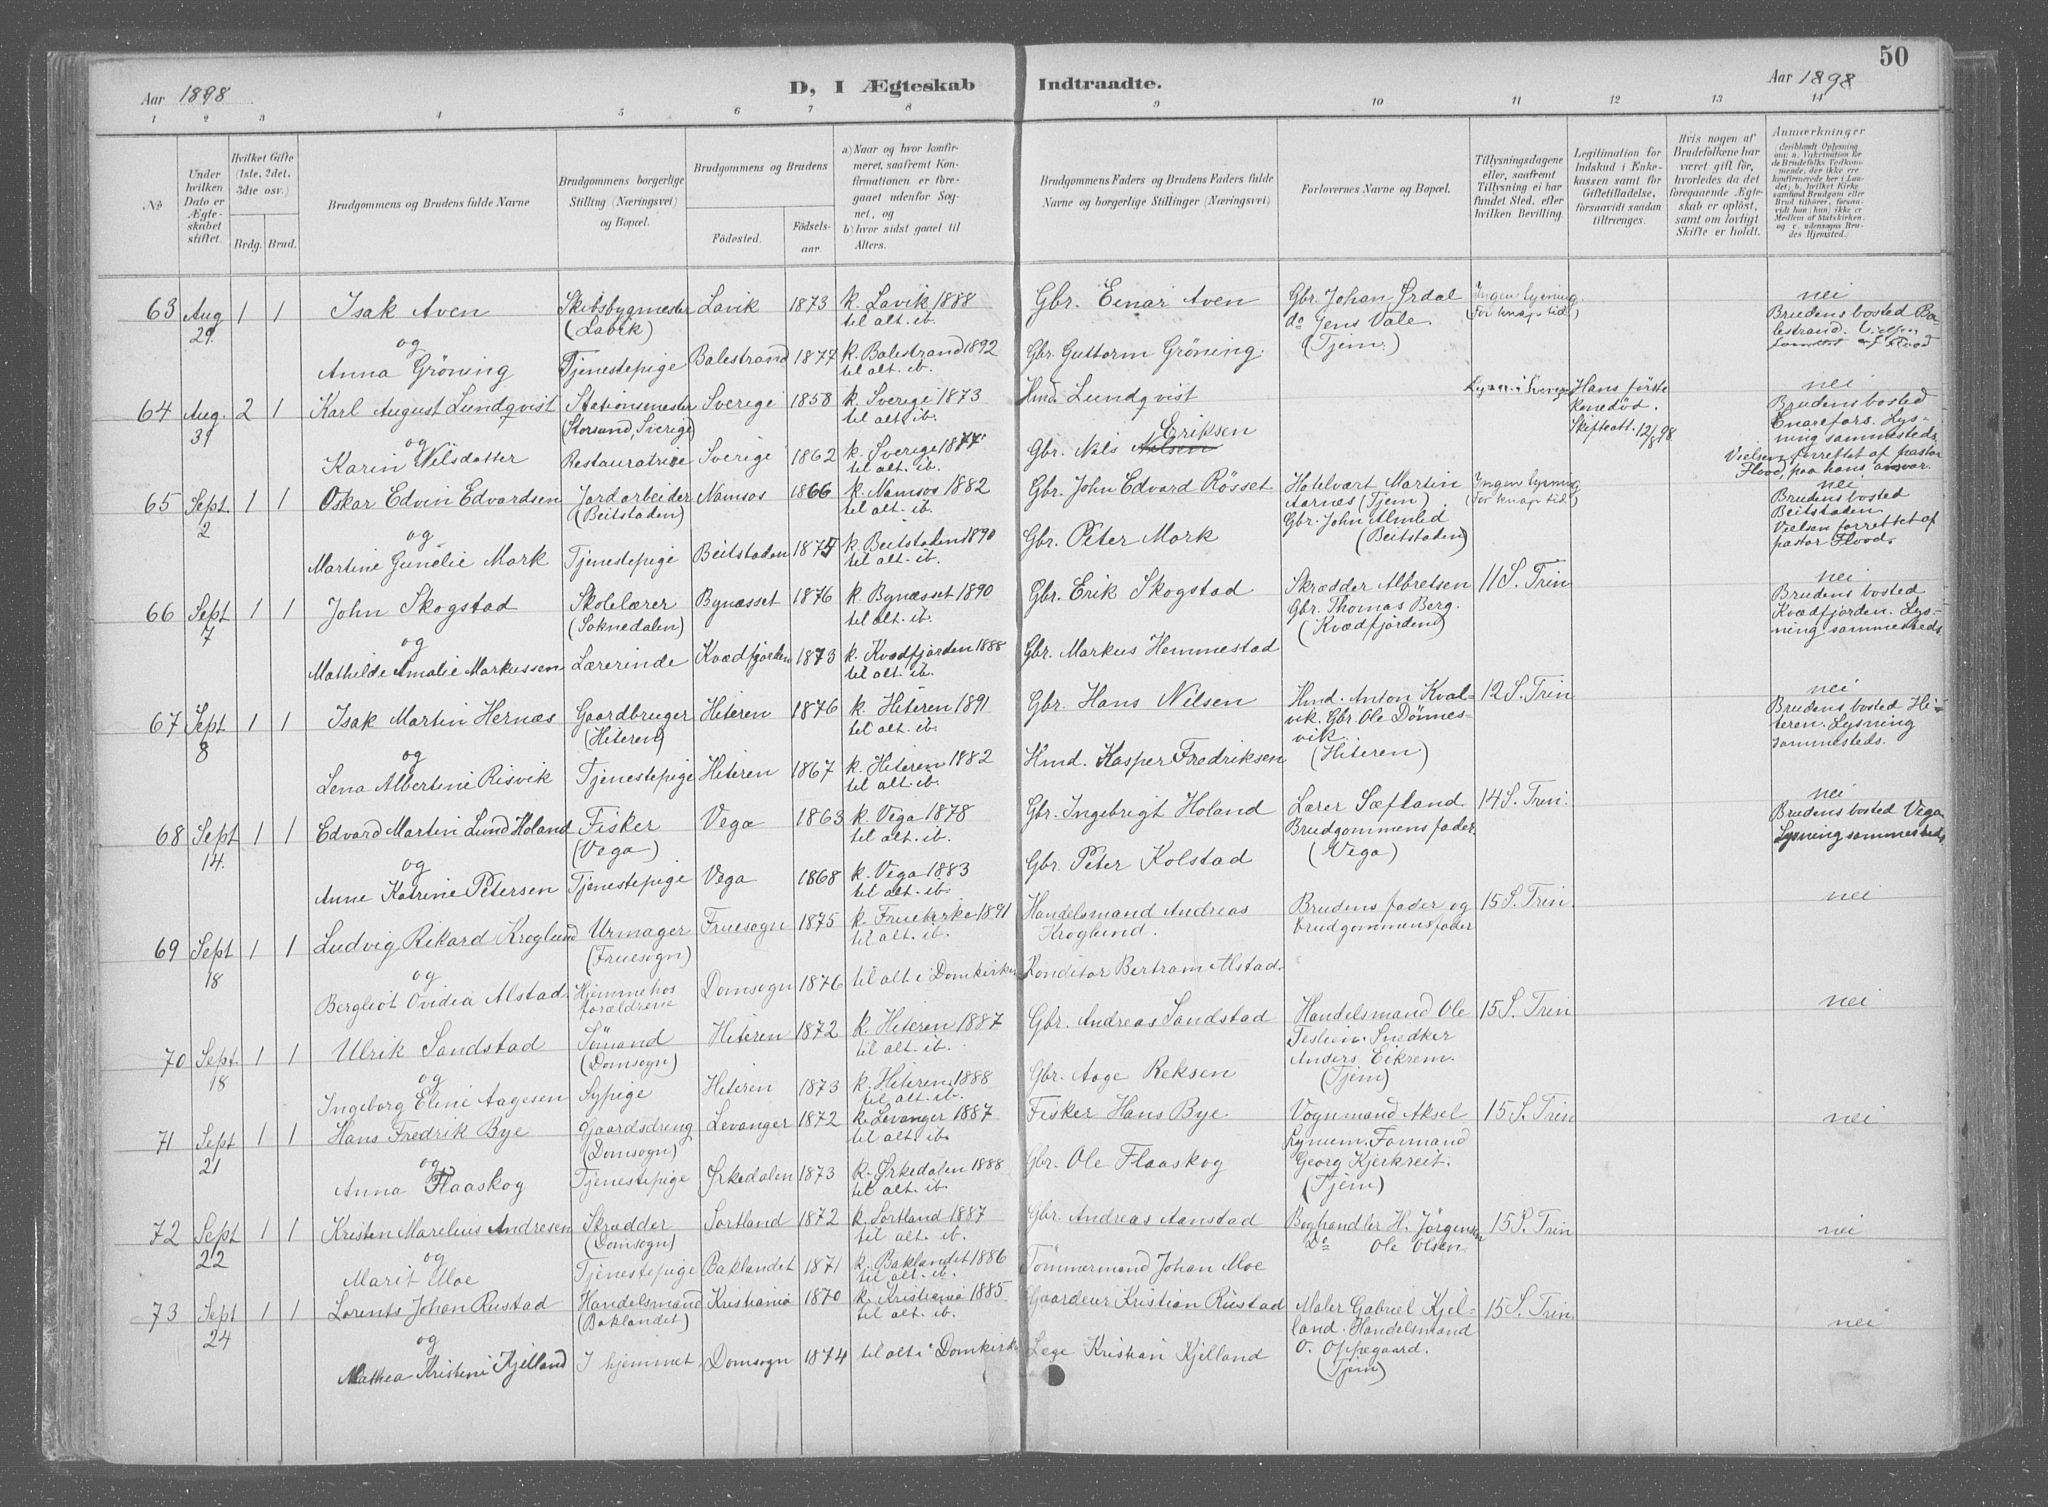 50
Aar 1898
D, I Ægteskab Indtraadte.
Aar 1898
1 2 3 4 5 6 7 8 9 10 11 12 13 14
No
Under hvilken Dato er Ægteskabet stiftet.
Hvilket Gifte (1ste, 2det, 3die osv.)
Brdg. Brud.
Brudgommens og Brudens fulde Navne
Brudgommens borgerlige Stilling (Næringsvei) og Bopæl.
Brudgommens og Brudens
Fødested.
Fødselsaar.
a) Naar og hvor konfirmeret, saafremt Konfirmationen er foregaaet udenfor Sognet, og
b) hvor sidst gaaet til Alters.
Brudgommens Faders og Brudens Faders fulde Navne og borgerlige Stillinger (Næringsvei)
Forlovernes Navne og Bopæl.
Tillysningsdagene eller, saafremt Tillysning ei har fundet Sted, efter hvilken Bevilling.
Legitimation for Indskud i Enkekassen samt for Giftetilladelse, forsaavidt saadan tiltrænges.
Hvis nogen af Brudefolkene har været gift før, hvorledes da det foregaaende Ægteskab er opløst, samt om lovligt Skifte er holdt.
Anmærkninger (deriblandt Oplysning om: a. Vakcination for de Brudefolks Vedkommende, der ikke ere konfirmerede her i Landet; b. hvilket Kirkesamfund Brudgom eller Brud tilhører, forsaavidt han (hun) ikke er Medlem af Statskirken, og c. udensogns Brudes Hjemsted.)
63 Aug 29. 1 1 Isak Aven Skibsbygmester (Lavik) Lavik 1873 k. Lavik 1888 til alt. ib. Gbr. Einar Aven Gbr. Johan Ørdal do Jens Vale. (Tjem.) Ingen lysning (For knap tid) nei
Brudens bosted Balestrand. Vielsen af Flood
og
Anna Gröning Tjenestepige Balestrand 1877 k. Balestrand 1892 til alt. ib. Gbr. Guttorm Gröning.
64 Aug. 31 2 1 Karl August Lundqvist Stationsmester (Storsund, Sverige) Sverige 1858 k. Sverige 1873 til alt. ib. Hmd. Lundqvist Lysn. i Sverige Hans förste kone död. Skifteatt. 12/8 98. nei
Brudens bosted Enarefors. Lysning sammesteds. Vielsen forrettet af pastor Flood, paa hans ansvar.
og
Karin Nilsdatter Restauratrice Sverige 1862 k. Sverige 1877 til alt. ib. Gbr. Nils Nilsen Eriksen
65 Sept. 2 1 1 Oskar Edvin Edvardsen Jordarbeider (Beitstaden) Namsos 1866 k. Namsos 1882 til alt. ib. Gbr. John Edvard Rösset Hotelvært Martin Aarnes (Tjem). Gbr. John Almlid (Beitstaden) Ingen lysning (For knap tid) nei
Brudens bosted Beitstaden. Vielsen forrettet af pastor Flood.
og
Martine Gunelie Mork Tjenestepige Beitstaden 1875 k. Beitstaden 1890 til alt. ib. Gbr. Peter Mork
66 Sept 7 1 1 John Skogstad Skolelærer (Soknedalen) Bynæsset 1876 k. Bynæsset 1890 til alt. ib. Gbr. Erik Skogstad Skrædder Albretsen Gbr. Thomas Berg. (Kvædfjorden) 11 S. Trin nei
Brudens bosted Kvædfjorden. Lysning sammesteds
og
Mathilde Amalie Markussen Lærerinde Kvædfjorden 1873 k. Kvædfjorden 1888 til alt. ib. Gbr. Markus Hemmestad
67 Sept 8 1 1 Isak Martin Hernæs Gaardbruger (Hiteren) Hiteren 1876 k. Hiteren 1891 til alt. ib. Gbr. Hans Nilsen Hmd. Anton Kvalvik. Gbr. Ole Dönnesvik. (Hiteren.) 12 S. Trin nei
Brudens bosted Hiteren. Lysning sammesteds.
og
Lena Albertine Risvik Tjenestepige Hiteren 1867 k. Hiteren 1882 til alt. ib. Hmd. Kasper Fredriksen
68 Sept 14. 1 1 Edvard Martin Lund Holand Fisker (Vega) Vega 1863 k. Vega 1878 til alt. ib. Gbr. Ingebrigt Holand Lærer Sæfland. Brudgommens fader (Vega) 14 S. Trin. nei
Brudens bosted Vega. Lysning sammesteds
og
Anne Katrine Petersen Tjenestepige Vega 1868 k. Vega 1883 til alt. ib. Gbr. Peter Kolstad
69 Sept 18 1 1 Ludvig Rikard Kroglund Urmager (Fruesogn) Fruesogn 1875 k. Fruekirke 1891 til alt. ib. Handelsmand Andreas Kroglund. Brudens fader og brudgommens fader 15 S. Trin. nei
og
Bergliot Ovidia Alstad Hjemme hos forældrene Domsogn 1876 til alt i Domkirken Konditor Bertram Alstad.
70 Sept. 18 1 1 Ulrik Sandstad Sömand (Domsogn) Hiteren 1872 k. Hiteren 1887 til alt. ib. Gbr. Andreas Sandstad Handelsmand Ole Teslien. Snedker Anders Eikrem. (Tjem) 15 S. Trin nei
og
Ingeborg Eline Aagesen Sypige Hiteren 1873 k. Hiteren 1888 til alt. ib. Gbr. Aage Reksen
71 Sept 21 1 1 Hans Fredrik Bye Gaardsdreng (Domsogn) Levanger 1872 k. Levanger 1887 til alt. ib. Fisker Hans Bye. Vognmand Aksel Lynum. Formand Georg Kjerkreit. (Tjem) 15 S. Trin nei
og
Anna Flaaskog Tjenestepige Ørkedalen 1873 k. Ørkedalen 1888 til alt. ib. Gbr. Ole Flaaskog
72 Sept 22 1 1 Kristen Marelius Andresen Skrædder (Domsogn) Sortland 1872 k. Sortland 1887 til alt. ib. Gbr. Andreas Aanstad Boghandler H. Jörgensen Do Ole Olsen. 15 S. Trin nei
og
Marit Moe Tjenestepige Baklandet 1871 k. Baklandet 1886 til alt. ib. Tömmermand Johan Moe
73 Sept 24 1 1 Lorents Johan Rustad Handelsmand (Baklandet) Kristiania 1870 k. Kristiania 1885 til alt. ib. Gaardeier Kristian Rustad Maler Gabriel Kjelland. Handelsmand O. Oppegaard. (Tjem) 15 S. Trin. nei
og
Mathea Kristine Kjelland I hjemmet. Domsogn 1874 til alt i Domkirke Læge Kristian Kjelland